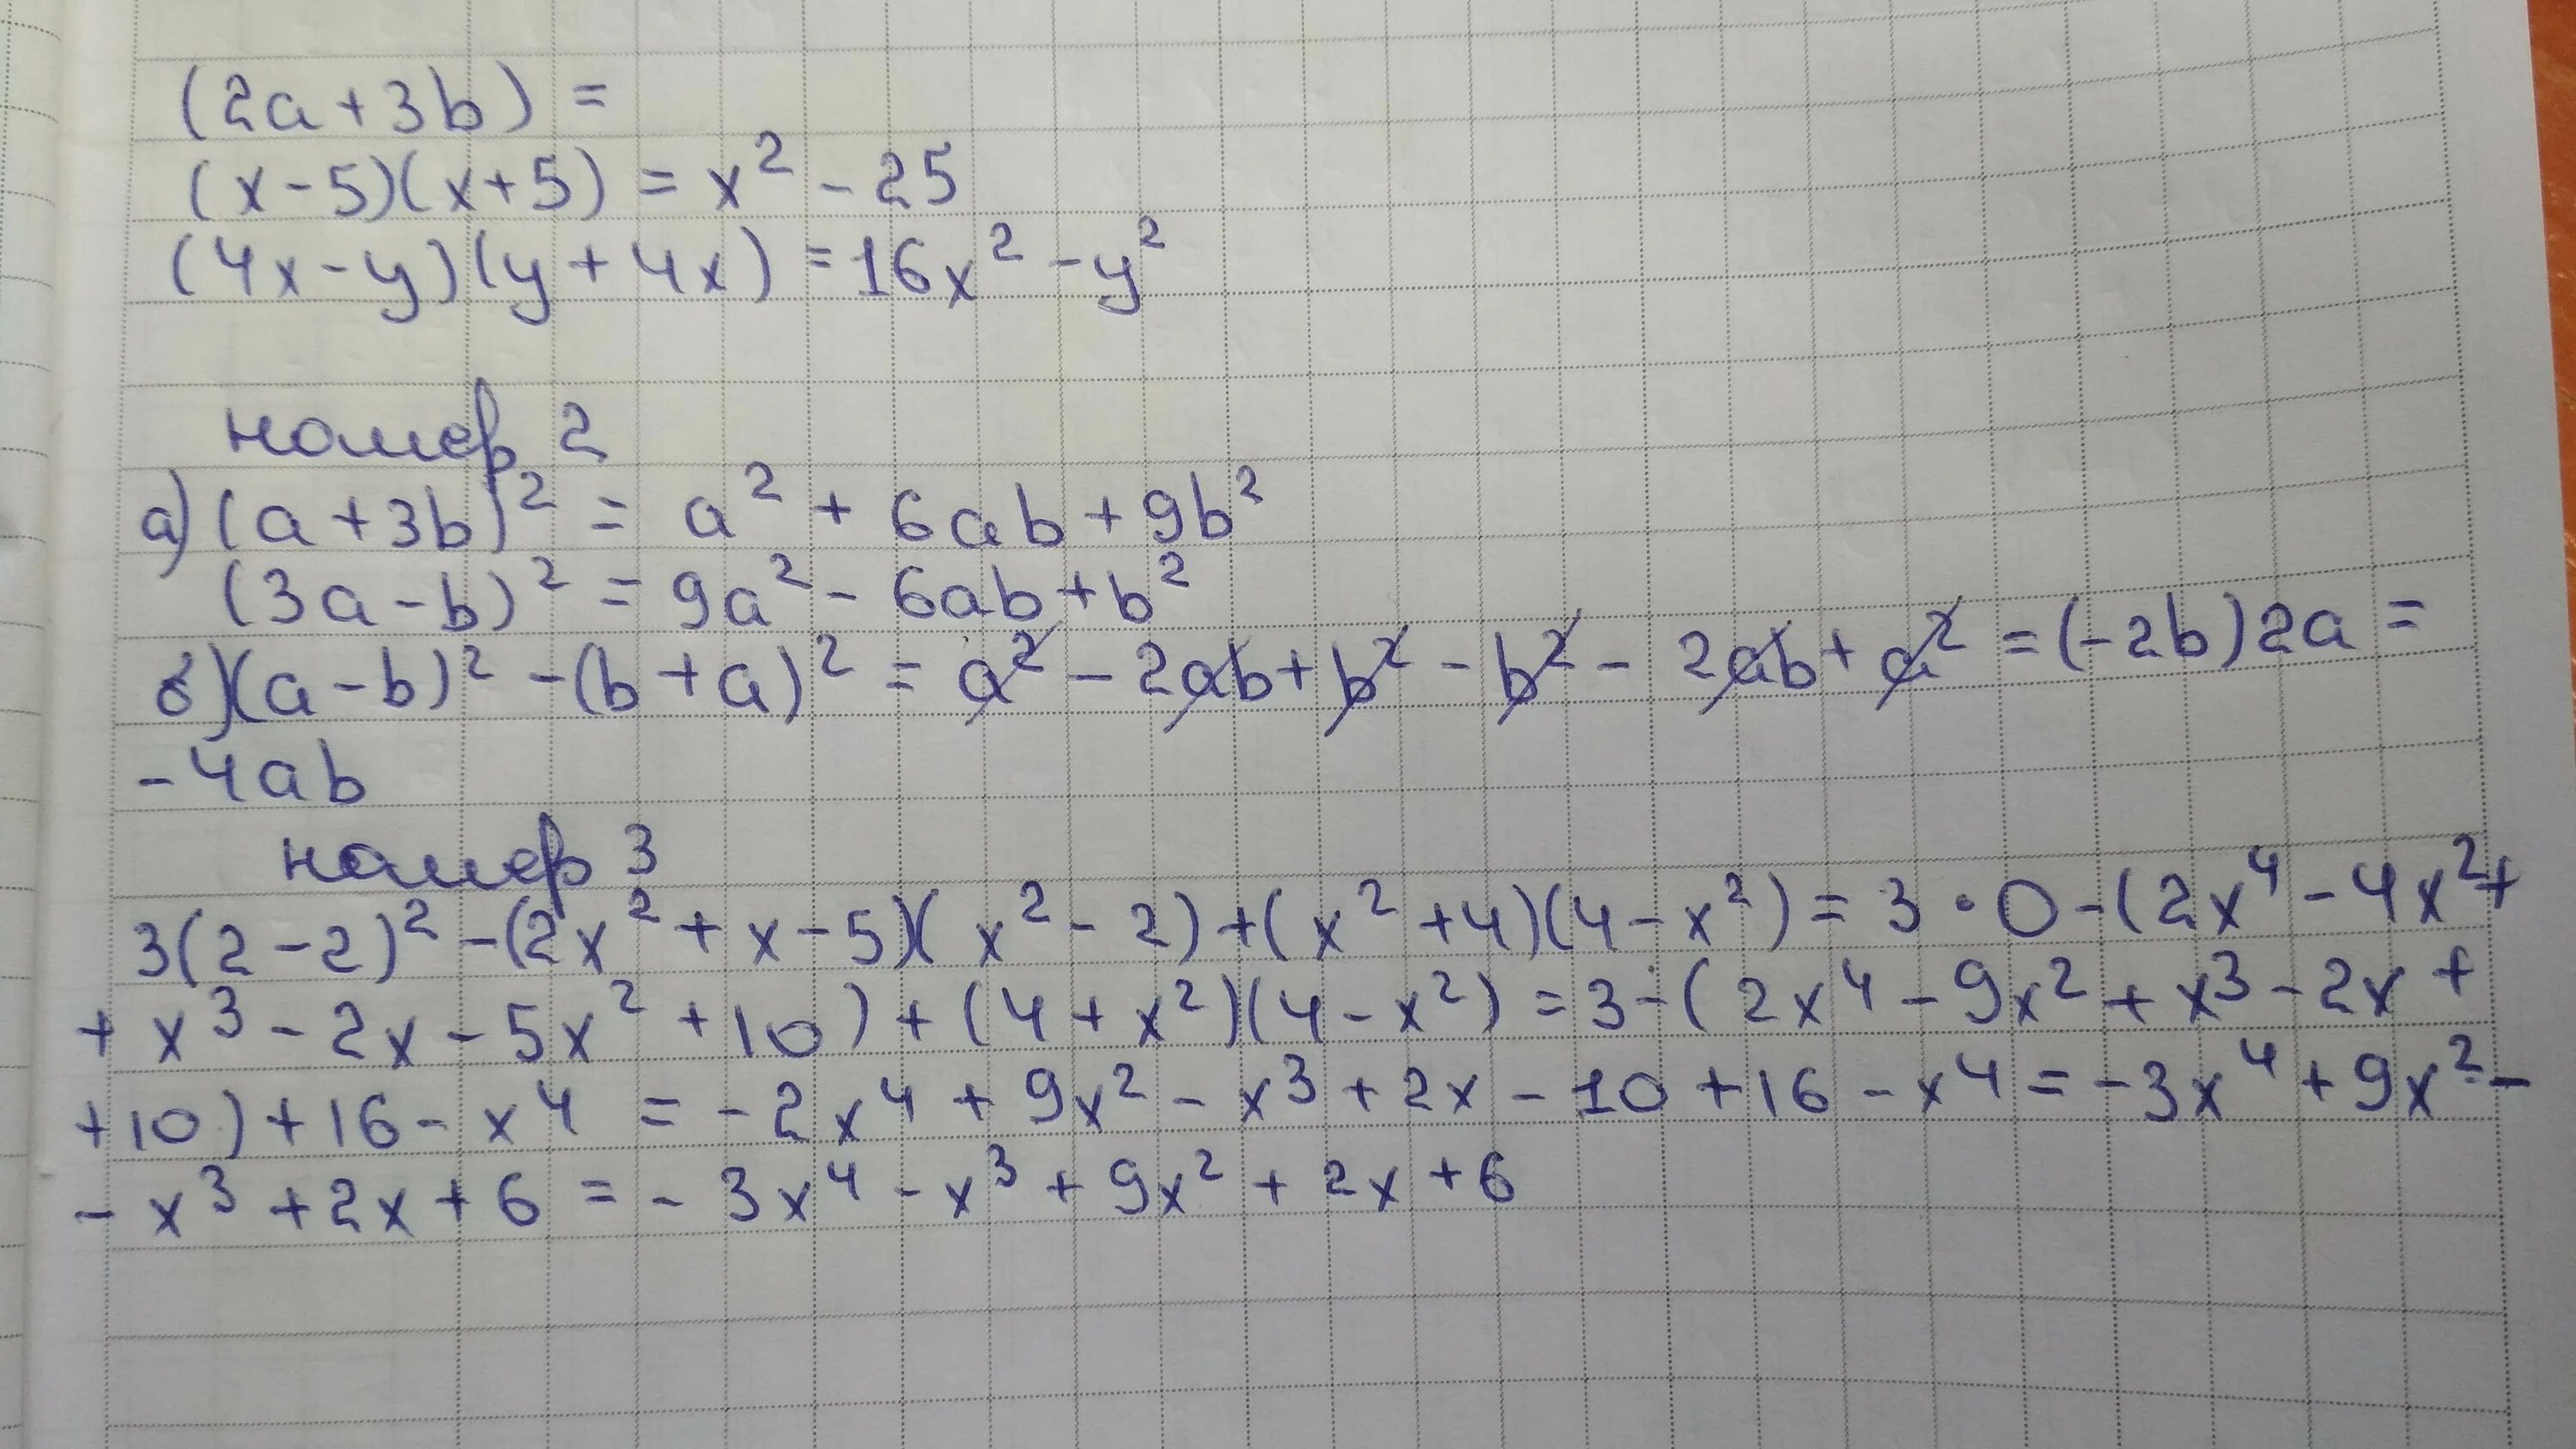 (2a+3b) =
(x-5)(x+5) = x² - 25
(4x-y)(y+4x) = 16x² - y²
номер 2
а) (a+3b)² = a² + 6ab + 9b²
(3a-b)² = 9a² - 6ab + b²
б) (a-b)² - (b+a)² = a² - 2ab + b² - b² - 2ab + a² = (-2b)2a =
-4ab
номер 3
3(2-2)² - (2x² + x - 5)(x² - 2) + (x² + 4)(4 - x²) = 3 · 0 - (2x⁴ - 4x² +
+ x³ - 2x - 5x² + 10) + (4 + x²)(4 - x²) = 3 - (2x⁴ - 9x² + x³ - 2x +
+10) + 16 - x⁴ = -2x⁴ + 9x² - x³ + 2x - 10 + 16 - x⁴ = -3x⁴ + 9x² -
- x³ + 2x + 6 = -3x⁴ - x³ + 9x² + 2x + 6